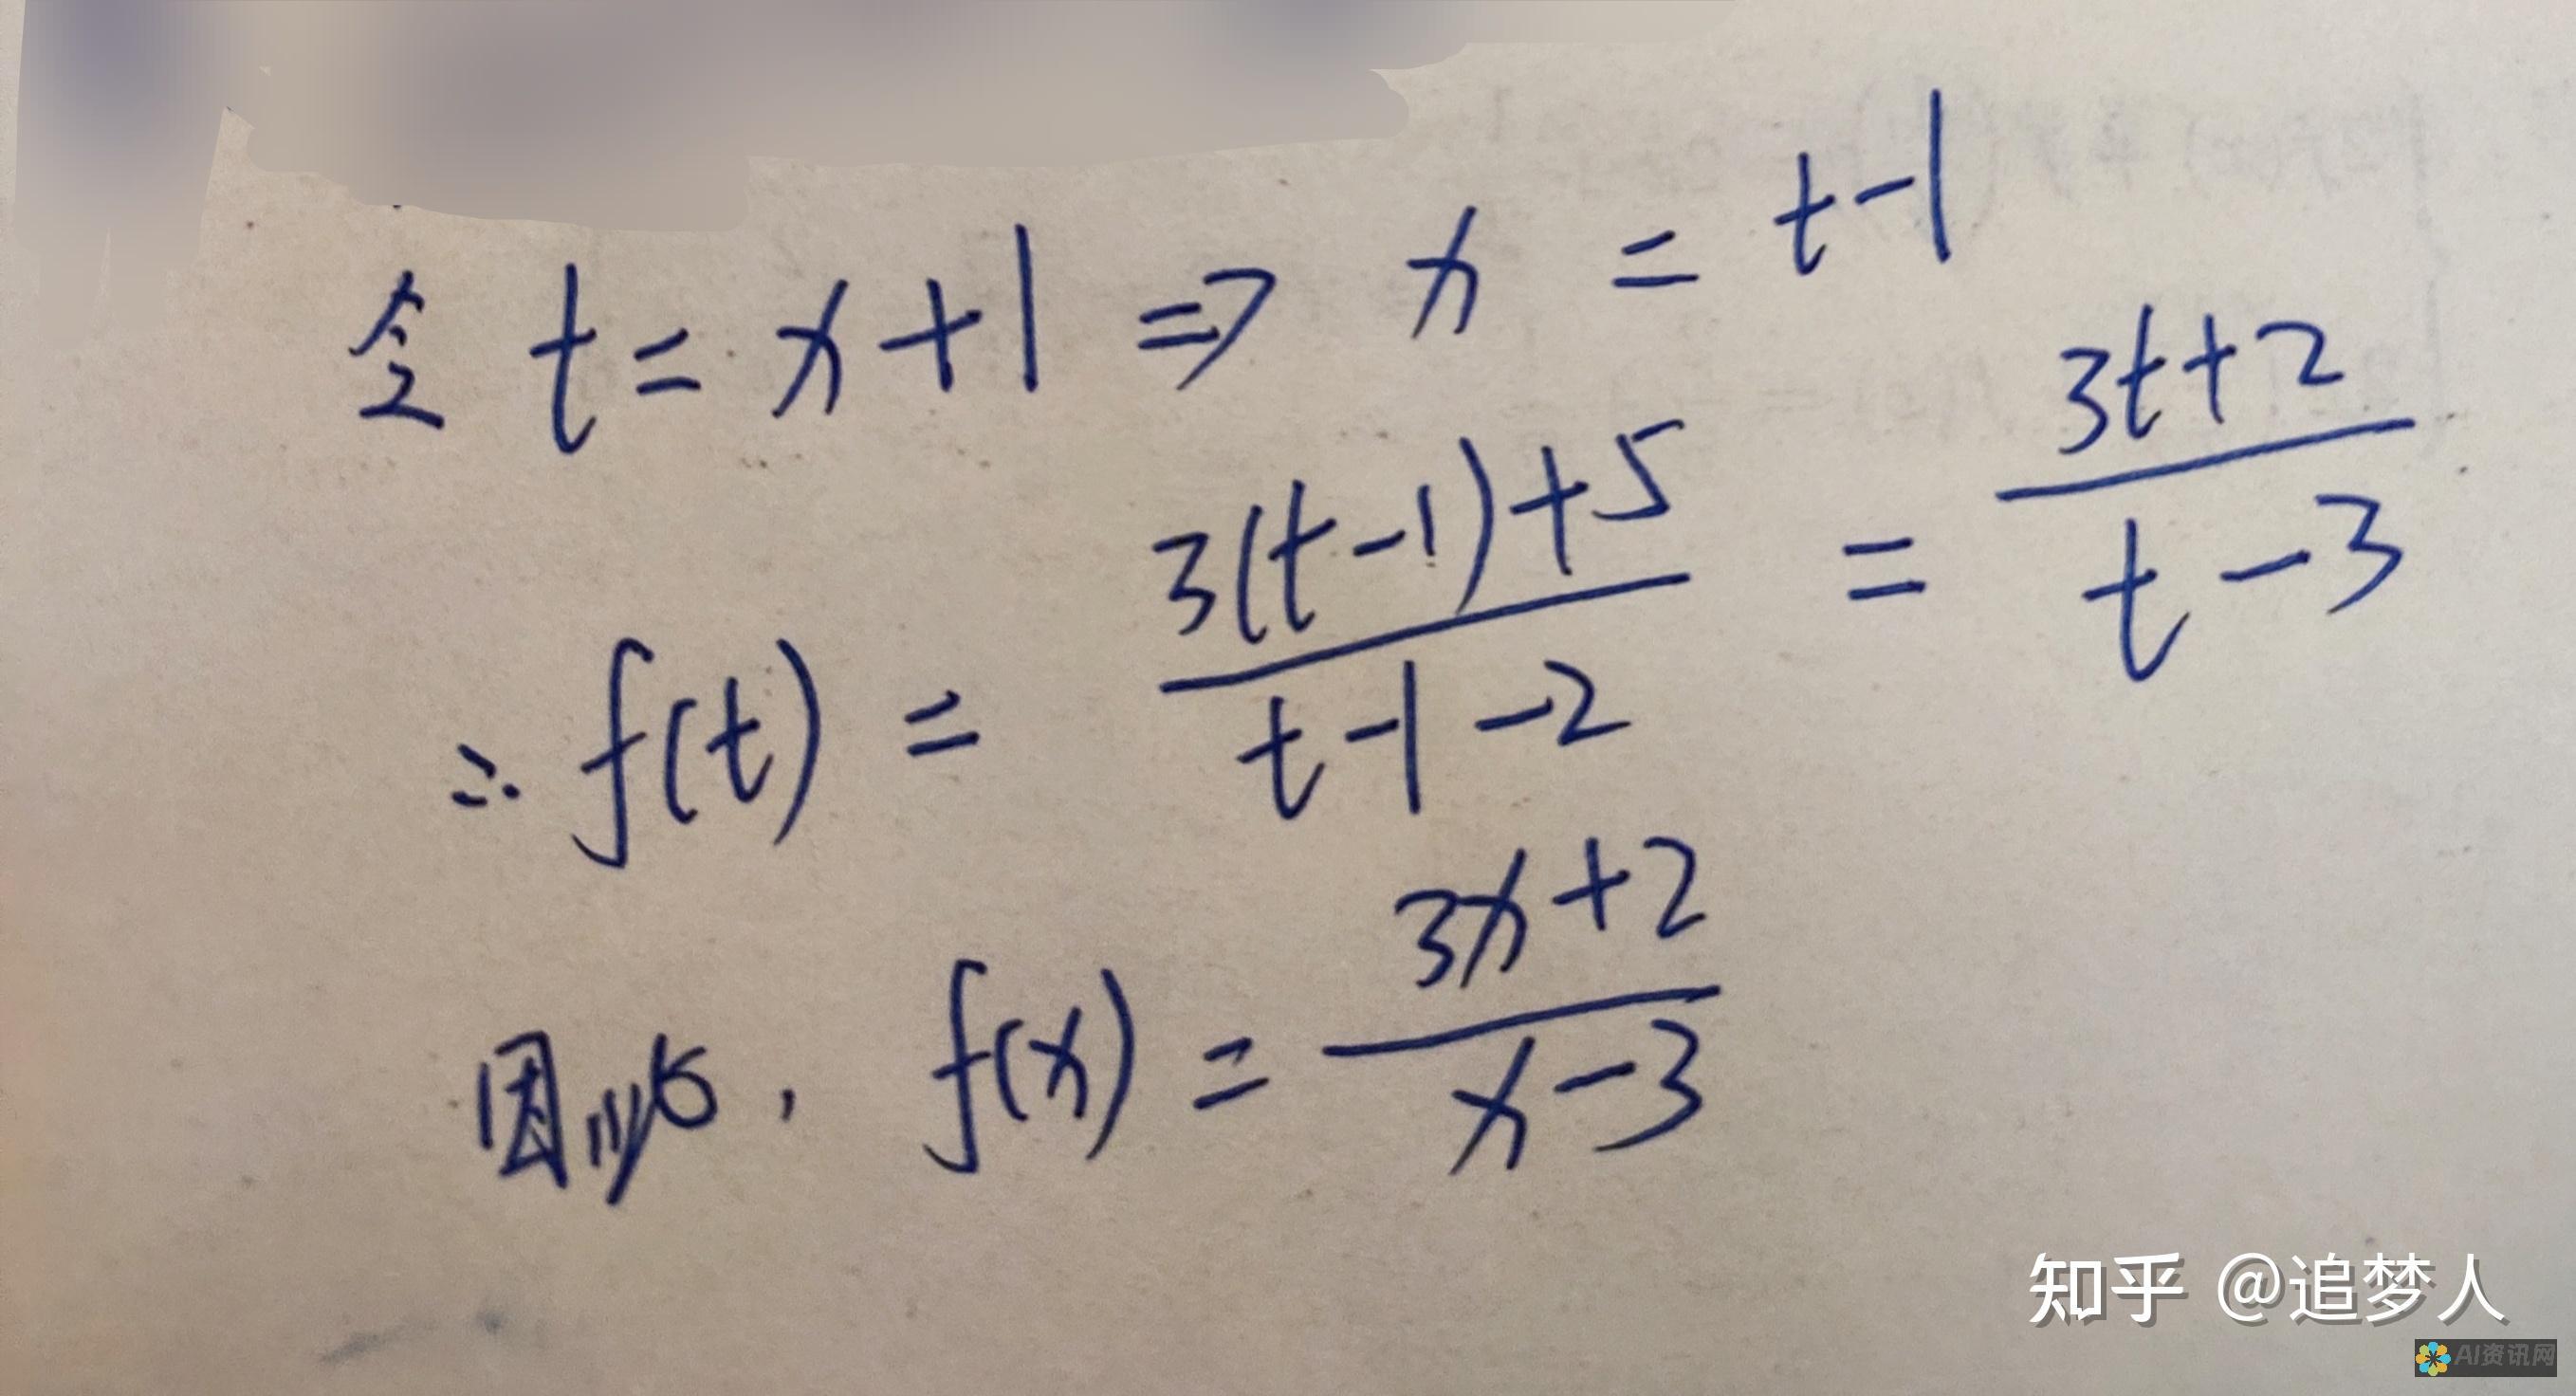 令 t = x+1 => x = t-1
∴ f(t) = \frac{3(t-1)+5}{t-1-2} = \frac{3t+2}{t-3}
因此, f(x) = \frac{3x+2}{x-3}
知乎 @追梦人
AI资讯网